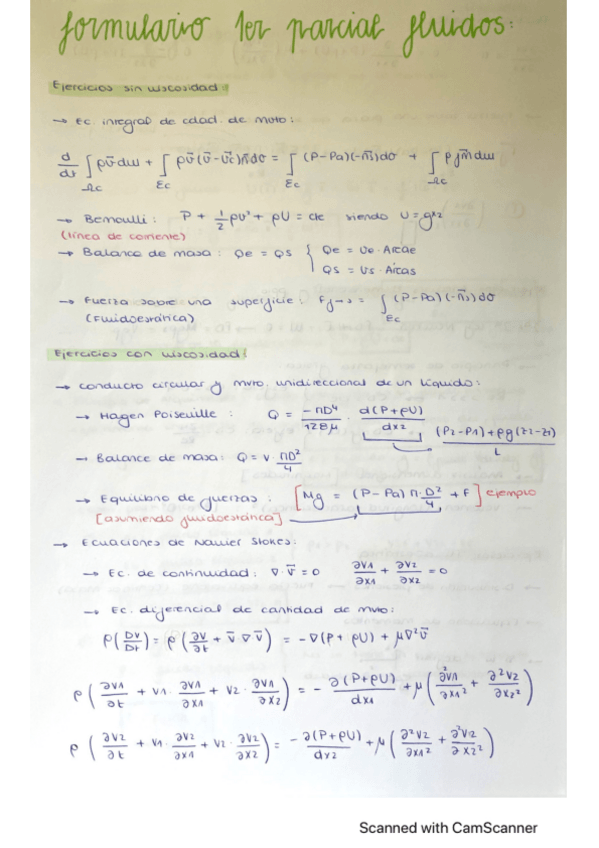 formulario 1er parcial fluidos:
Ejercicios sin viscosidad:
→ Ec. integral de cdad. de mvto:
d/dt ∫_Ωc ρv̄dω + ∫_Σc ρv̄(v̄-v̄c)n̄dσ = ∫_Σc (P-Pa)(-n̄)dσ + ∫_Ωc ρf̄m dω
→ Bernoulli: P + 1/2 ρv² + ρU = cte siendo U = g·z
(línea de corriente)
→ Balance de masa: Qe = Qs { Qe = Ve · Áreae
Qs = Vs · Áreas
→ Fuerza sobre una superficie: Ff→s = ∫_Σc (P-Pa)(-n̄s)dσ
(Fluidoestática)
Ejercicios con viscosidad:
→ conducto circular y mvto. unidireccional de un líquido:
→ Hagen Poiseuille: Q = -πD⁴/128μ · d(P+ρU)/dx2
(P2-P1)+ρg(z2-z1)/L
→ Balance de masa: Q = v · πD²/4
→ Equilibrio de fuerzas: [Mg = (P-Pa)π·D²/4 + F] ejemplo
[asumiendo fluidoestática]
→ Ecuaciones de Navier Stokes:
→ Ec. de continuidad: ∇·v̄ = 0 ∂v1/∂x1 + ∂v2/∂x2 = 0
→ Ec. diferencial de cantidad de mvto:
ρ(Dv̄/Dt) = ρ(∂v̄/∂t + v̄∇v̄) = -∇(P+ρU) + μ∇²v̄
ρ(∂v1/∂t + v1·∂v1/∂x1 + v2·∂v1/∂x2) = -∂(P+ρU)/dx1 + μ(∂²v1/∂x1² + ∂²v2/∂x2²)
ρ(∂v2/∂t + v1·∂v2/∂x1 + v2·∂v2/∂x2) = -∂(P+ρU)/dx2 + μ(∂²v2/∂x1² + ∂²v2/∂x2²)
Scanned with CamScanner